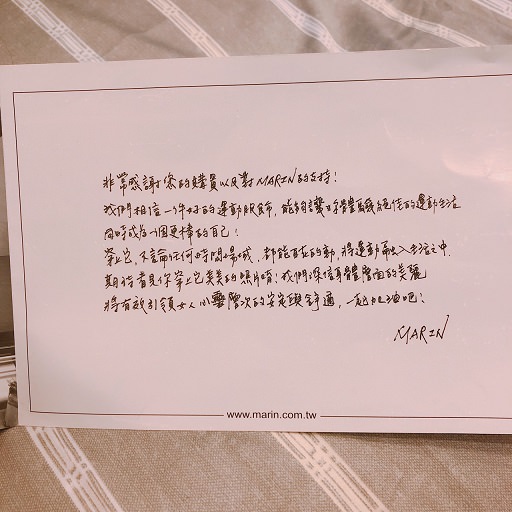 非常感謝您的購買以及對MARIN的支持!
我們相信一件好的運動服飾,能夠讓妳體驗絕佳的運動生活
同時成為一個更棒的自己!
穿上它,不論任何時間場域,都能自在的動,將運動融入生活之中.
期待看見你穿上它美美的照片唷!我們深信身體層面的美麗
將有效引領女人心靈層次的安定與舒適,一起加油吧!
MARIN
www.marin.com.tw